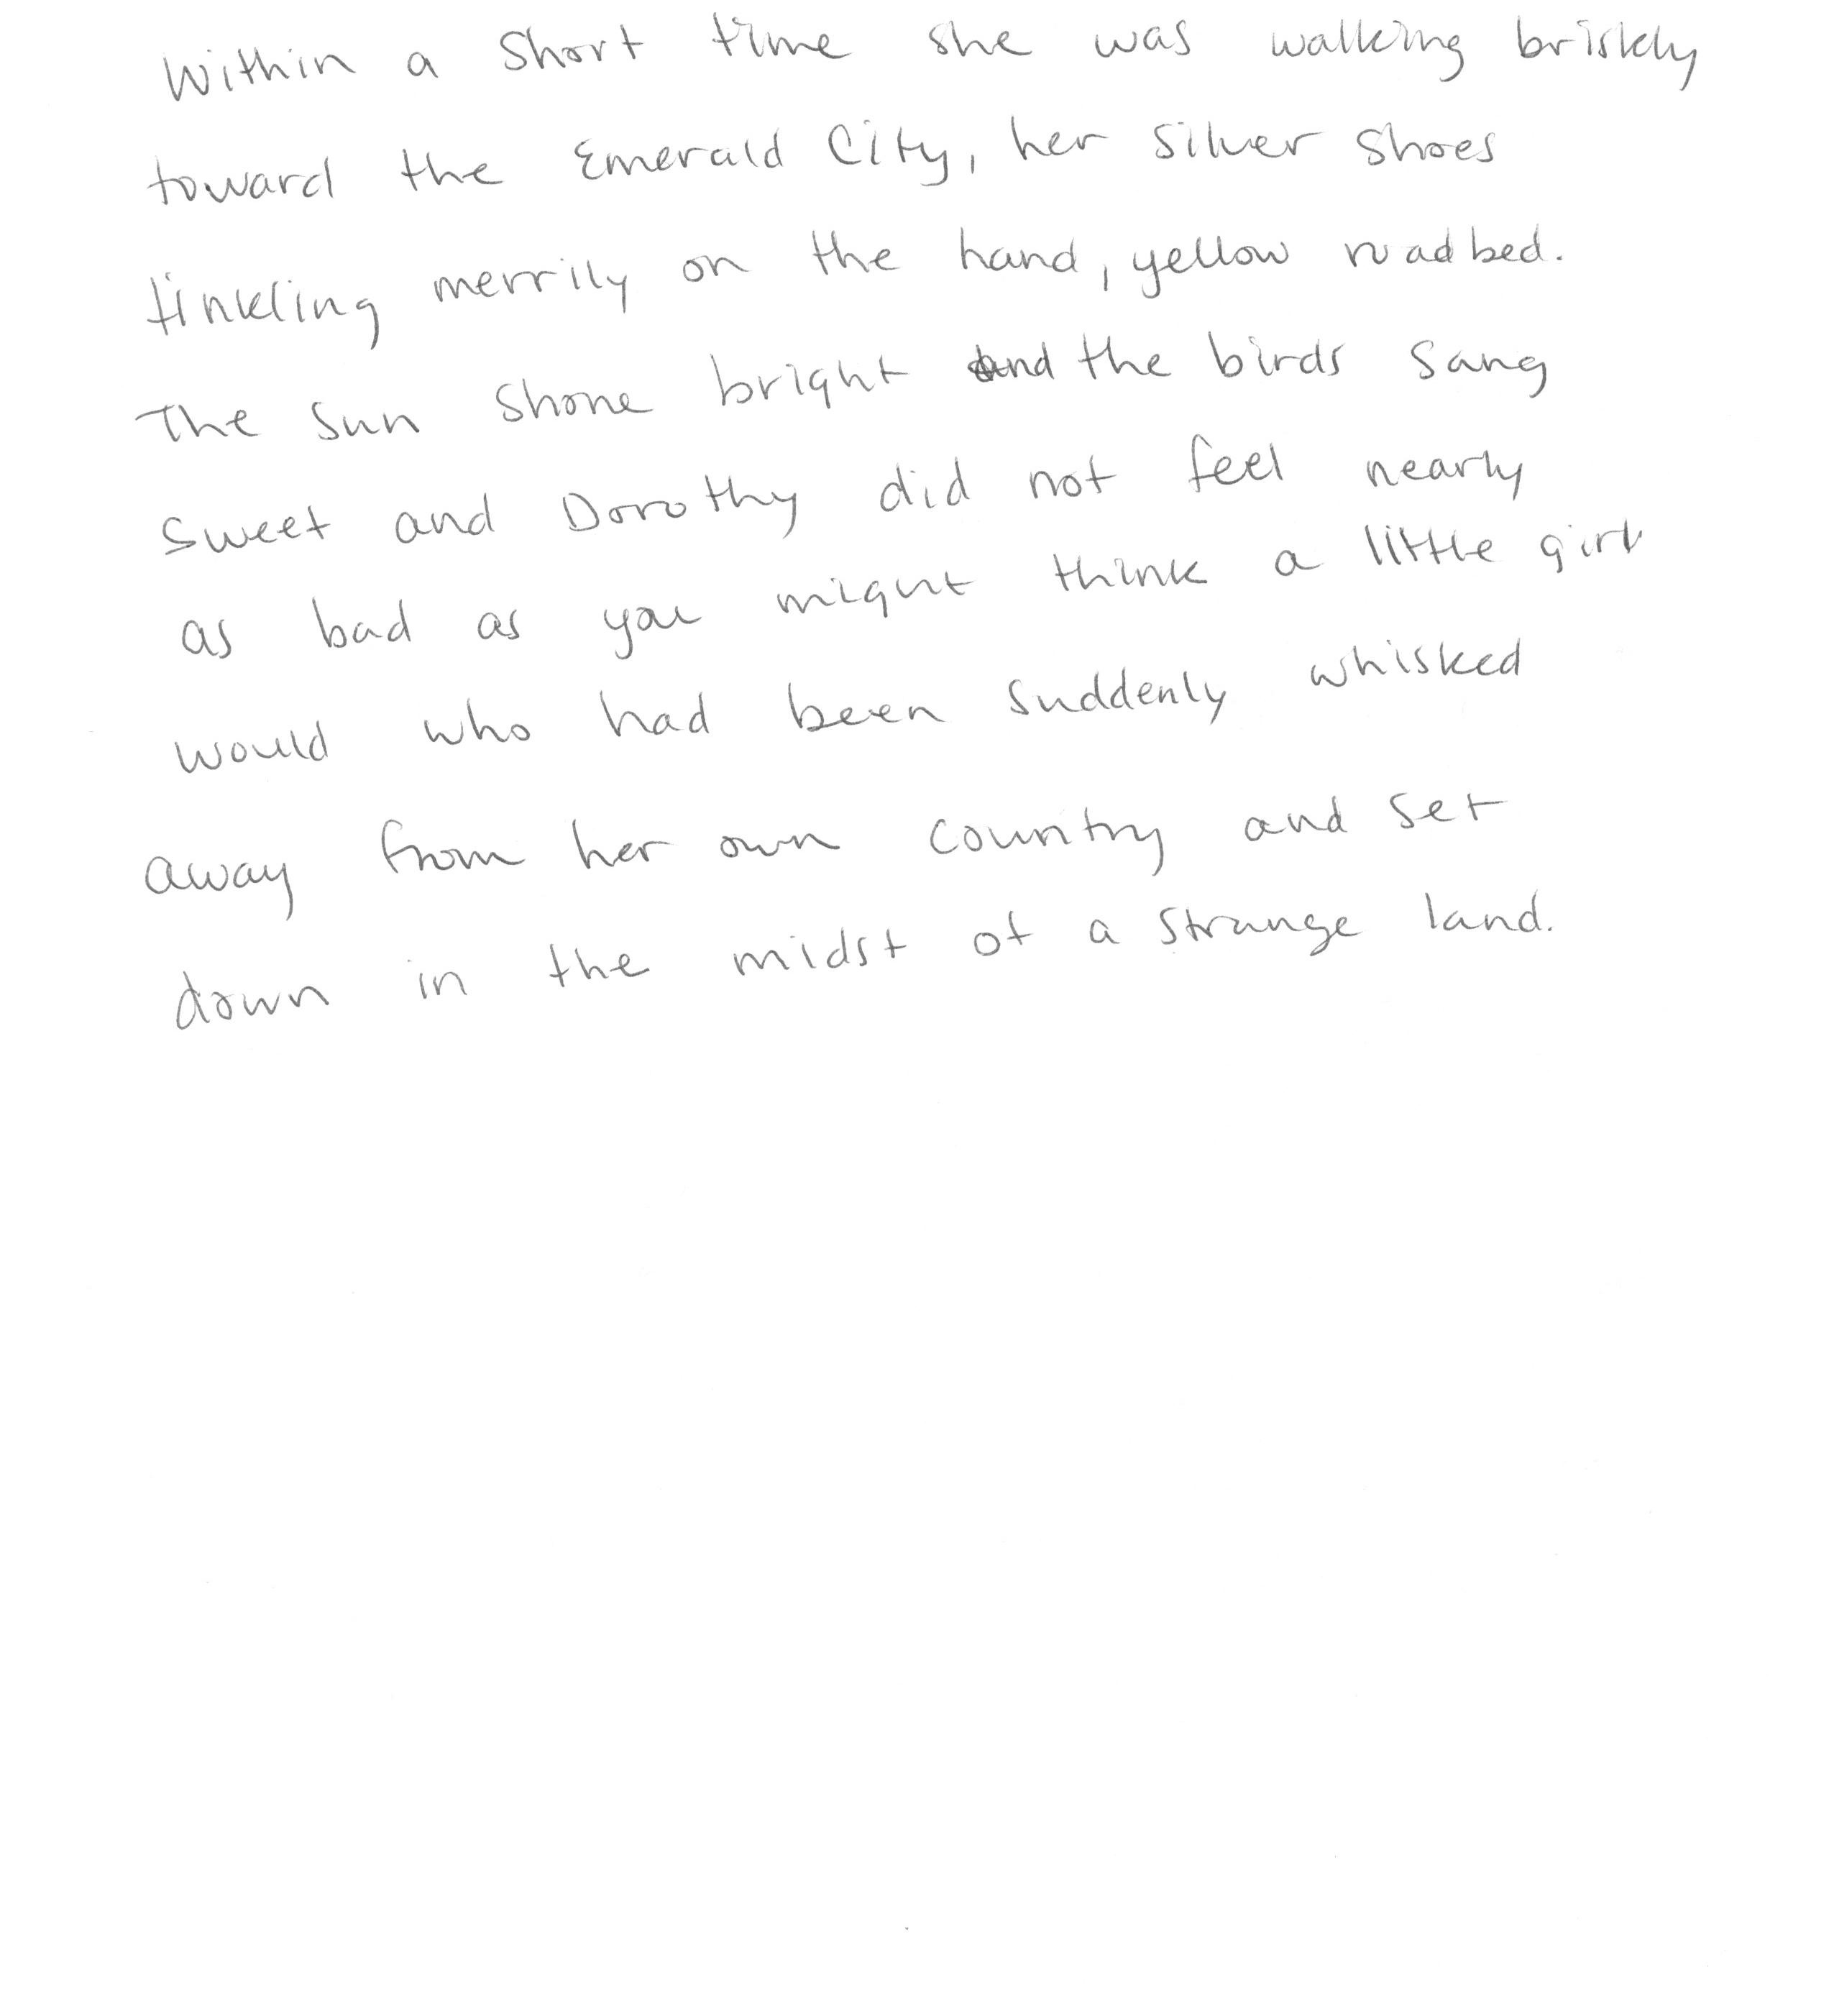 Within a short time she was walking briskly
toward the Emerald City, her silver shoes
tinkling merrily on the hand, yellow roadbed.
The sun shone bright and the birds sang
sweet and Dorothy did not feel nearly
as bad as you might think a little girl
would who had been suddenly whisked
away from her own country and set
down in the midst of a strange land.